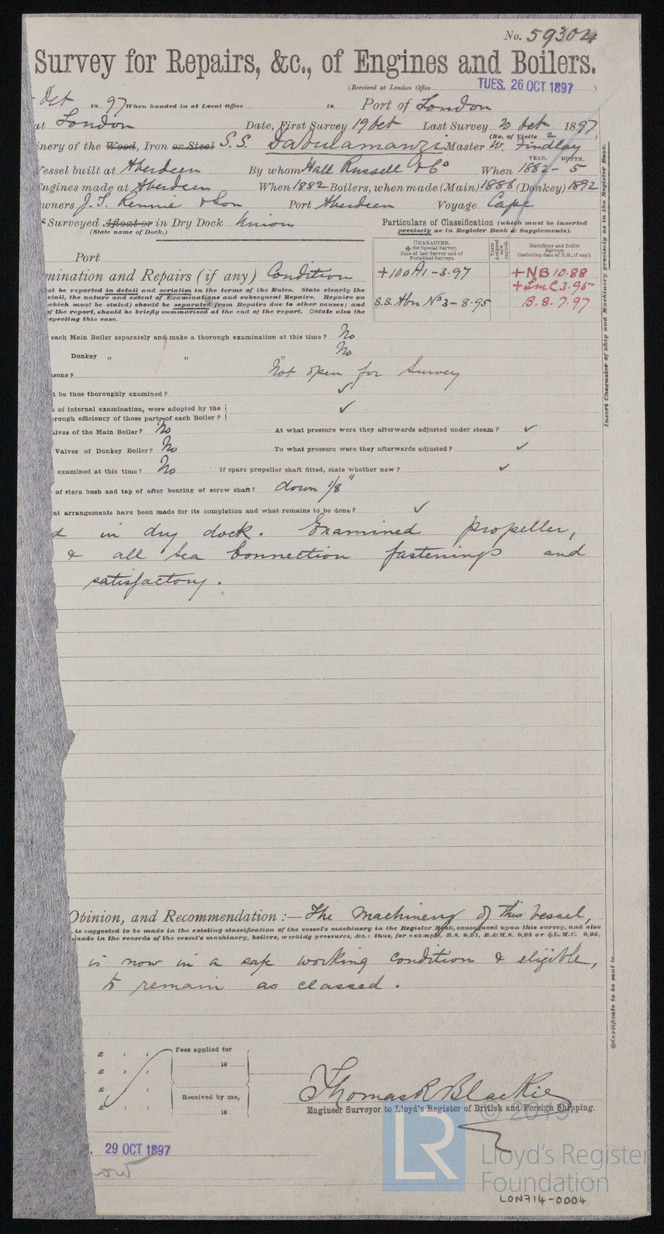 No. 59304
Survey for Repairs, &c., of Engines and Boilers.
(Received at London Office TUES. 26 OCT 1897 )
Oct 18 97 When handed in at Local Office 18 Port of London
at London Date, First Survey 19 Oct Last Survey 20 Oct 1897
(No. of Visits 2)
inery of the Wood, Iron or Steel S.S. Dabulamanzi Master W. Findlay
YEAR. MONTH.
Vessel built at Aberdeen By whom Hall Russell & Co When 1882 - 5
Engines made at Aberdeen When 1882 Boilers, when made (Main) 1888 (Donkey) 1892
wners J. T. Rennie & Son Port Aberdeen Voyage Cape
Surveyed Afloat or in Dry Dock Union
(State name of Dock.)
Particulars of Classification (which must be inserted
precisely as in Register Book & Supplements).
CHARACTER.
for Special Survey.
Date of last Survey and of
Periodical Surveys
Machinery and Boiler
Surveys
(including date of N.B., if any).
+100 A1 - 3.97
+NB 10.88
+LMC 3.95
S.S. Abn No 3 - 8.95
B.S. 7.97
Port
mination and Repairs (if any) Condition
st be reported in detail and seriatim in the terms of the Rules. State clearly the
etail, the nature and extent of Examinations and subsequent Repairs. Repairs on
which must be stated) should be separated from Repairs due to other causes; and
of the report, should be briefly summarised at the end of the report. State also the
specting this case.
each Main Boiler separately and make a thorough examination at this time? No
Donkey „ „ „ No
sons? Not open for Survey
t be thus thoroughly examined? ✓
s of internal examination, were adopted by the
orough efficiency of those parts of each Boiler? ✓
alves of the Main Boiler? No At what pressure were they afterwards adjusted under steam? ✓
Valves of Donkey Boiler? No To what pressure were they afterwards adjusted? ✓
examined at this time? No If spare propeller shaft fitted, state whether new? ✓
of stern bush and top of after bearing of screw shaft? down 1/8"
at arrangements have been made for its completion and what remains to be done? ✓
d in dry dock. Examined propeller,
& all Sea Connection fastenings and
satisfactory.
Insert Character of Ship and Machinery precisely as in the Register Book.
Opinion, and Recommendation:— The machinery of this vessel,
is suggested to be made in the existing classification of the vessel's machinery in the Register Book, consequent upon this survey, and also
made in the records of the vessel's machinery, boilers, working pressures, &c.: thus, for example, B.S. 9,95, B.&M.S. 9,95 or L.M.C. 9,95.
is now in a safe working condition & eligible,
to remain as classed.
Certificate to be sent to
£ : :
£ : :
£ : :
£ : :
Fees applied for
18
Received by me,
18
Thomas R Blackie
Engineer Surveyor to Lloyd's Register of British and Foreign Shipping.
29 OCT 1897
now
© 2019
LR
Lloyd's Register
Foundation
LON714-0004